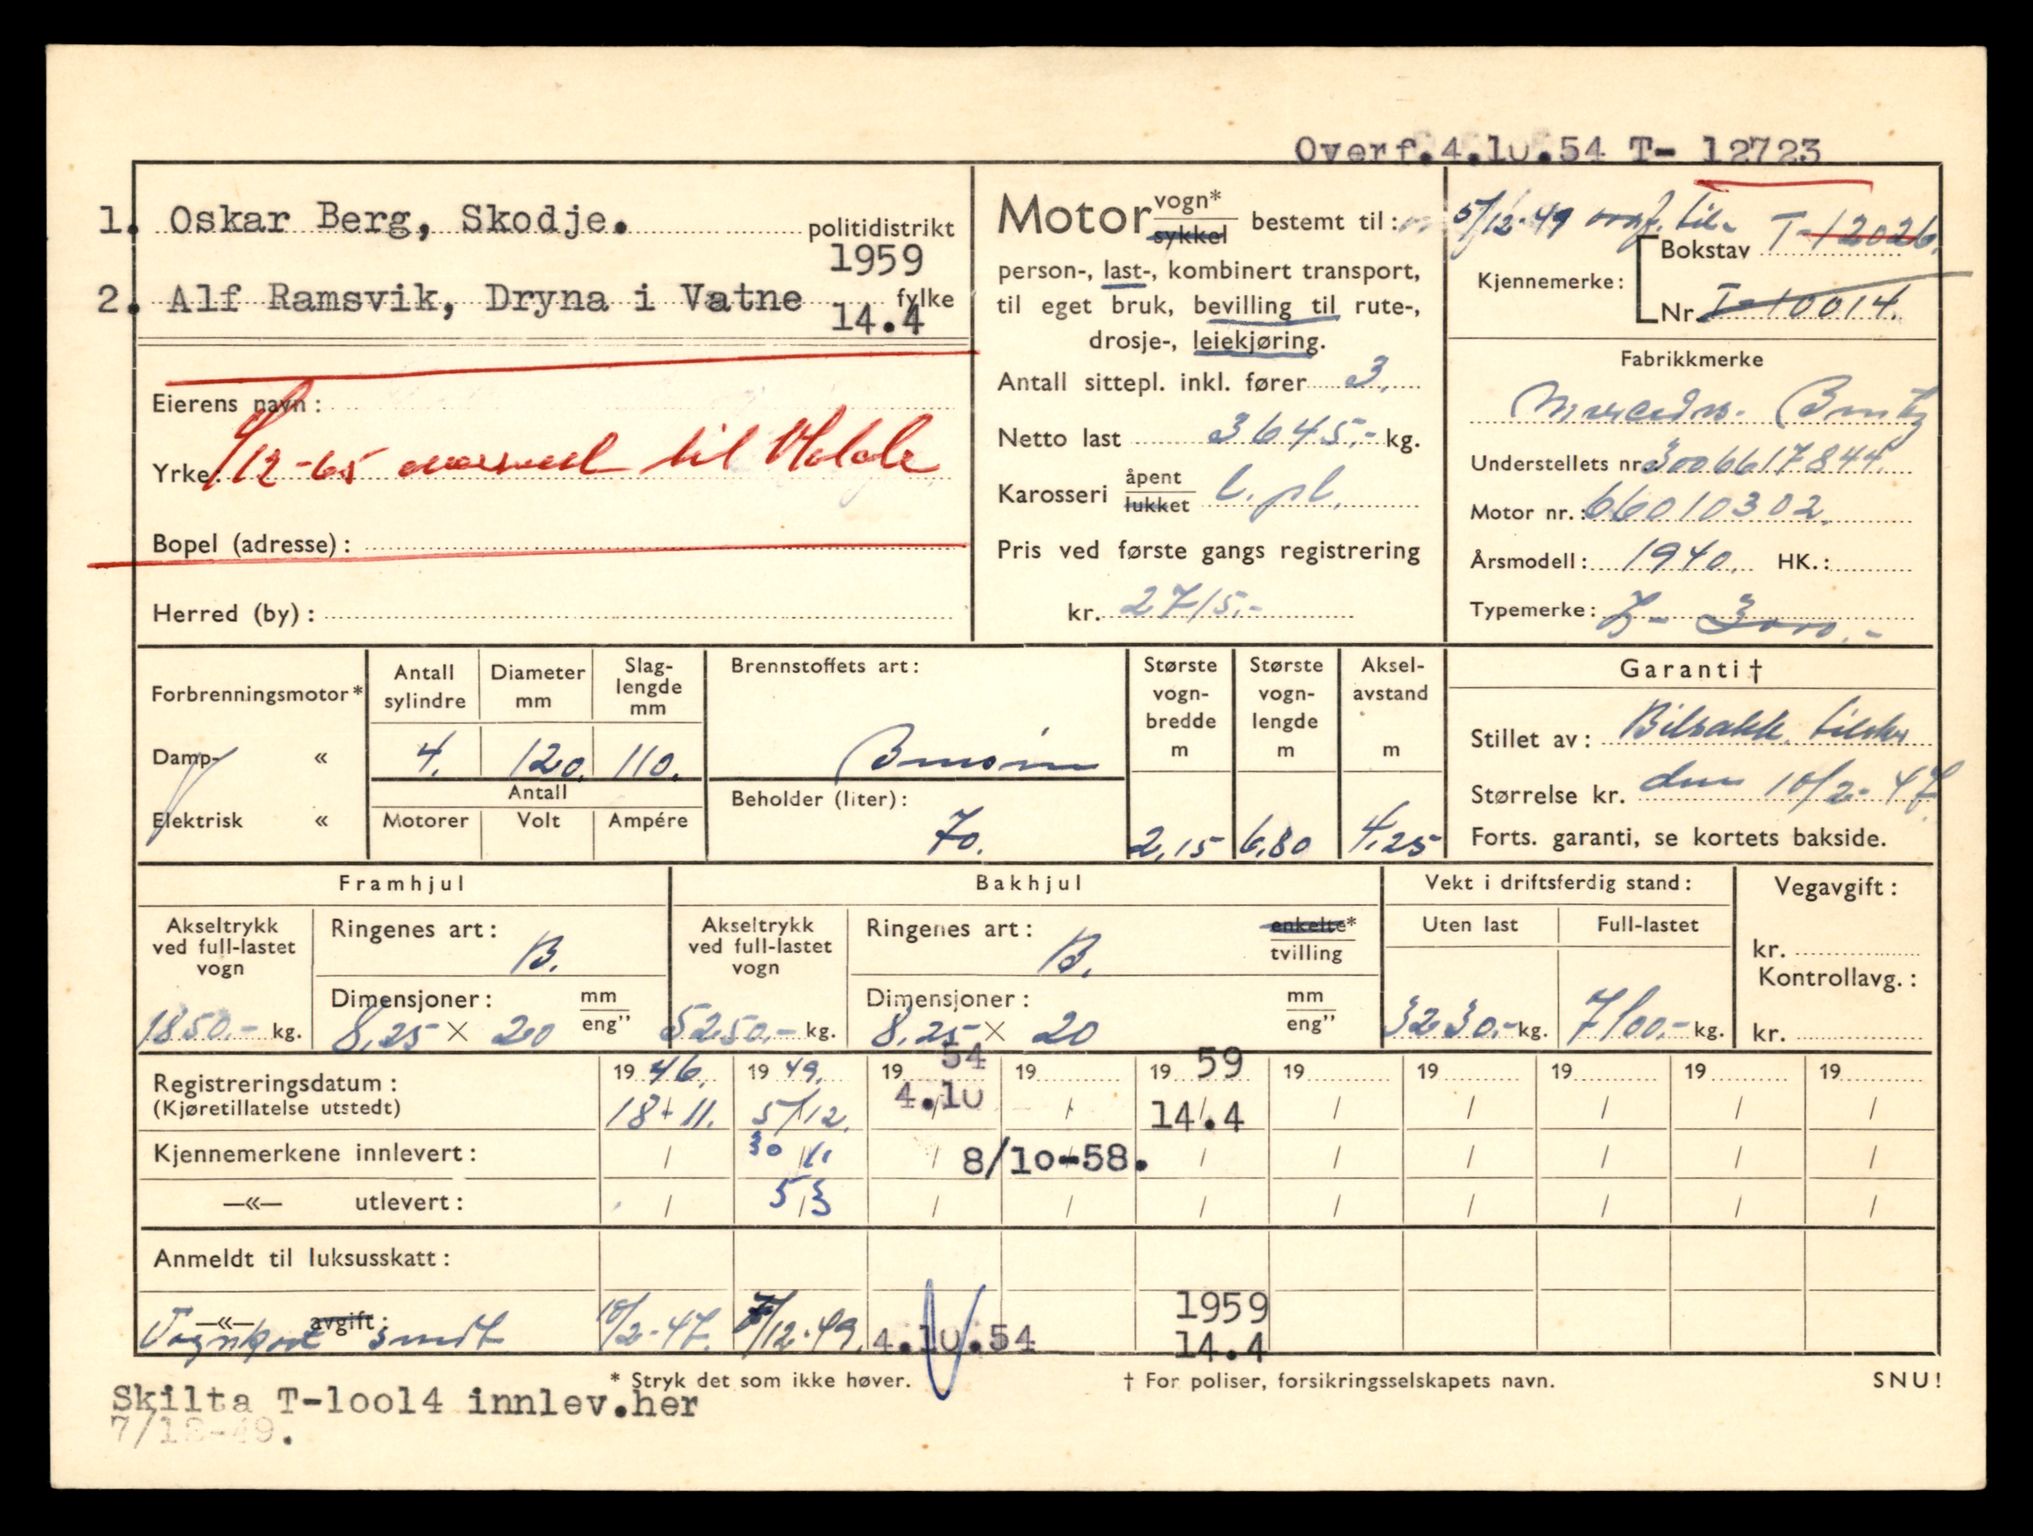 Overf.4.10.54 T- 12723
1. Oskar Berg, Skodje.
politidistrikt
1959
2. Alf Ramsvik, Dryna i Vatne
fylke
14.4
Eierens navn:
Yrke:
12-65 til Molde
Bopel (adresse):
Herred (by):
Motor vogn* sykkel bestemt til:
person-, last-, kombinert transport,
til eget bruk, bevilling til rute-,
drosje-, leiekjøring.
Antall sittepl. inkl. fører 3.
Netto last 3645.- kg.
Karosseri åpent lukket l. pl.
Pris ved første gangs registrering
kr. 2715.-
5/12-49 til
Kjennemerke:
Bokstav T-12026.
Nr. T-10014.
Fabrikkmerke
Mercedes-Benz
Understellets nr. 3006617844.
Motor nr.: 66010302.
Årsmodell: 1940. HK.:
Typemerke: 3000.-
Forbrenningsmotor*
Damp- «
Elektrisk «
Antall sylindre
4.
Diameter mm
120.
Slag-lengde mm
110.
Antall
Motorer Volt Ampére
Brennstoffets art:
Bensin
Beholder (liter):
70.
Største vogn-bredde m
2,15
Største vogn-lengde m
6.80
Aksel-avstand m
4.25
Garanti †
Stillet av: Bilsakk.
Størrelse kr. den 10/2-47
Forts. garanti, se kortets bakside.
Framhjul
Akseltrykk ved full-lastet vogn
1850.- kg.
Ringenes art: B.
Dimensjoner: mm eng”
8,25 × 20
Bakhjul
Akseltrykk ved full-lastet vogn
5250.- kg.
Ringenes art: B.
enkelte* tvilling
Dimensjoner: mm eng”
8,25 × 20
Vekt i driftsferdig stand:
Uten last
3230.- kg.
Full-lastet
7100.- kg.
Vegavgift:
kr.
Kontrollavg.:
kr.
Registreringsdatum: 19 46. 19 49. 19 54 19 19 59 19 19 19 19 19
(Kjøretillatelse utstedt) 18/11. 5/12. 4.10 / 14.4 / / / / /
Kjennemerkene innlevert: / 30/11 / 8/10-58. / / / / / /
—«— utlevert: / 5/3 / / / / / / / /
Anmeldt til luksusskatt:
—«— avgift:
Vognkort sendt 10/2-47. 7/12-49. 4.10.54 1959
14.4
* Stryk det som ikke høver.
† For poliser, forsikringsselskapets navn.
SNU!
Skilta T-10014 innlev.her
7/12-49.